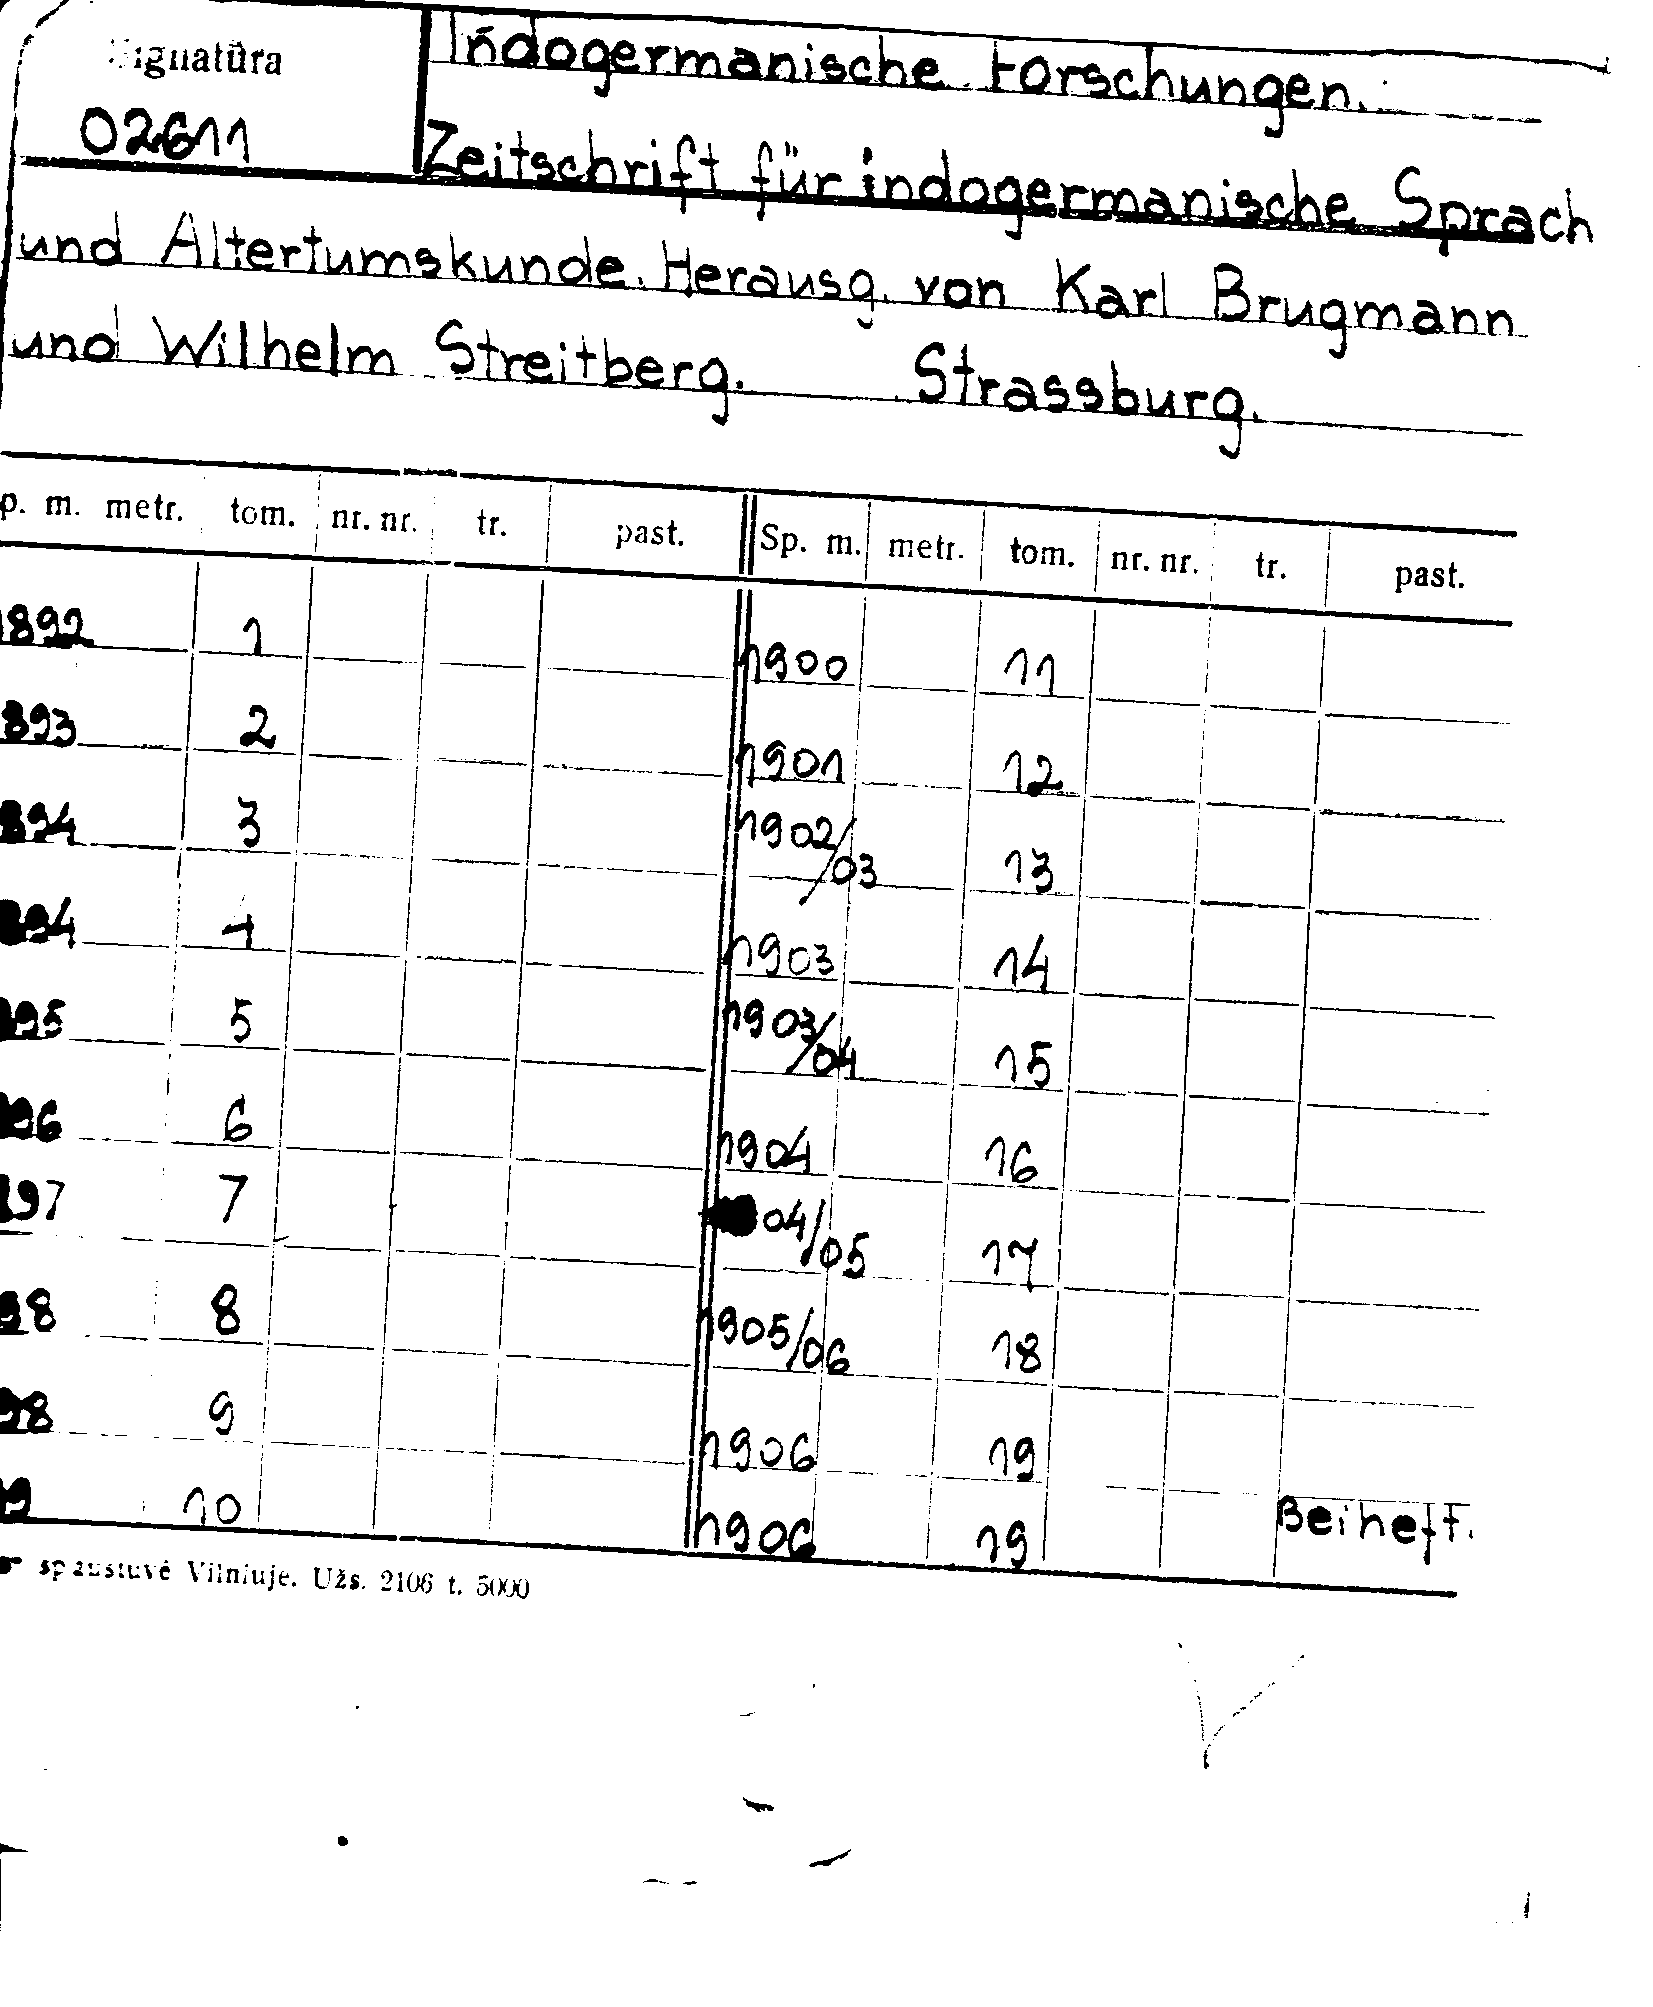 Signatūra
02611
Indogermanische Forschungen.
Zeitschrift für indogermanische Sprach
und Altertumskunde. Herausg. von Karl Brugmann
und Wilhelm Streitberg. Strassburg.
p. m. metr. tom. nr. nr. tr. past. Sp. m. metr. tom. nr. nr. tr. past.
1892 1
893 2
894 3
894 4
895 5
896 6
897 7
98 8
98 9
9 10
1900 11
1901 12
1902/03 13
1903 14
1903/04 15
1904 16
04/05 17
1905/06 18
1906 19
1906 19 Beiheft.
spaustuvė Vilniuje. Užs. 2106 t. 5000